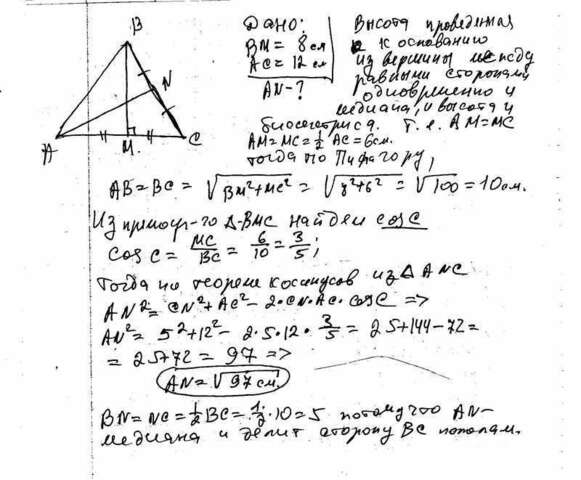 B
N
A
M
C
Дано:
BM = 8 см
AC = 12 см
AN - ?
Высота проведенная
к основанию
из вершины между
равными сторонами
одновременно и
медиана, и высота и
биссектриса. Т.е. AM=MC
AM=MC=½ AC=6см.
тогда по Пифагору,
AB=BC=√BM²+MC² = √8²+6² = √100 = 10 см.
Из прямоуг-го Δ-BMC найдем cosC
cos C = MC/BC = 6/10 = 3/5;
Тогда по теореме косинусов из Δ ANC
AN² = CN²+AC² - 2·CN·AC·cosC =>
AN² = 5²+12² - 2·5·12·3/5 = 25+144-72=
= 25+72 = 97 =>
AN=√97 см
BN=NC=½BC=½·10=5 потому что AN-
медиана и делит сторону BC пополам.